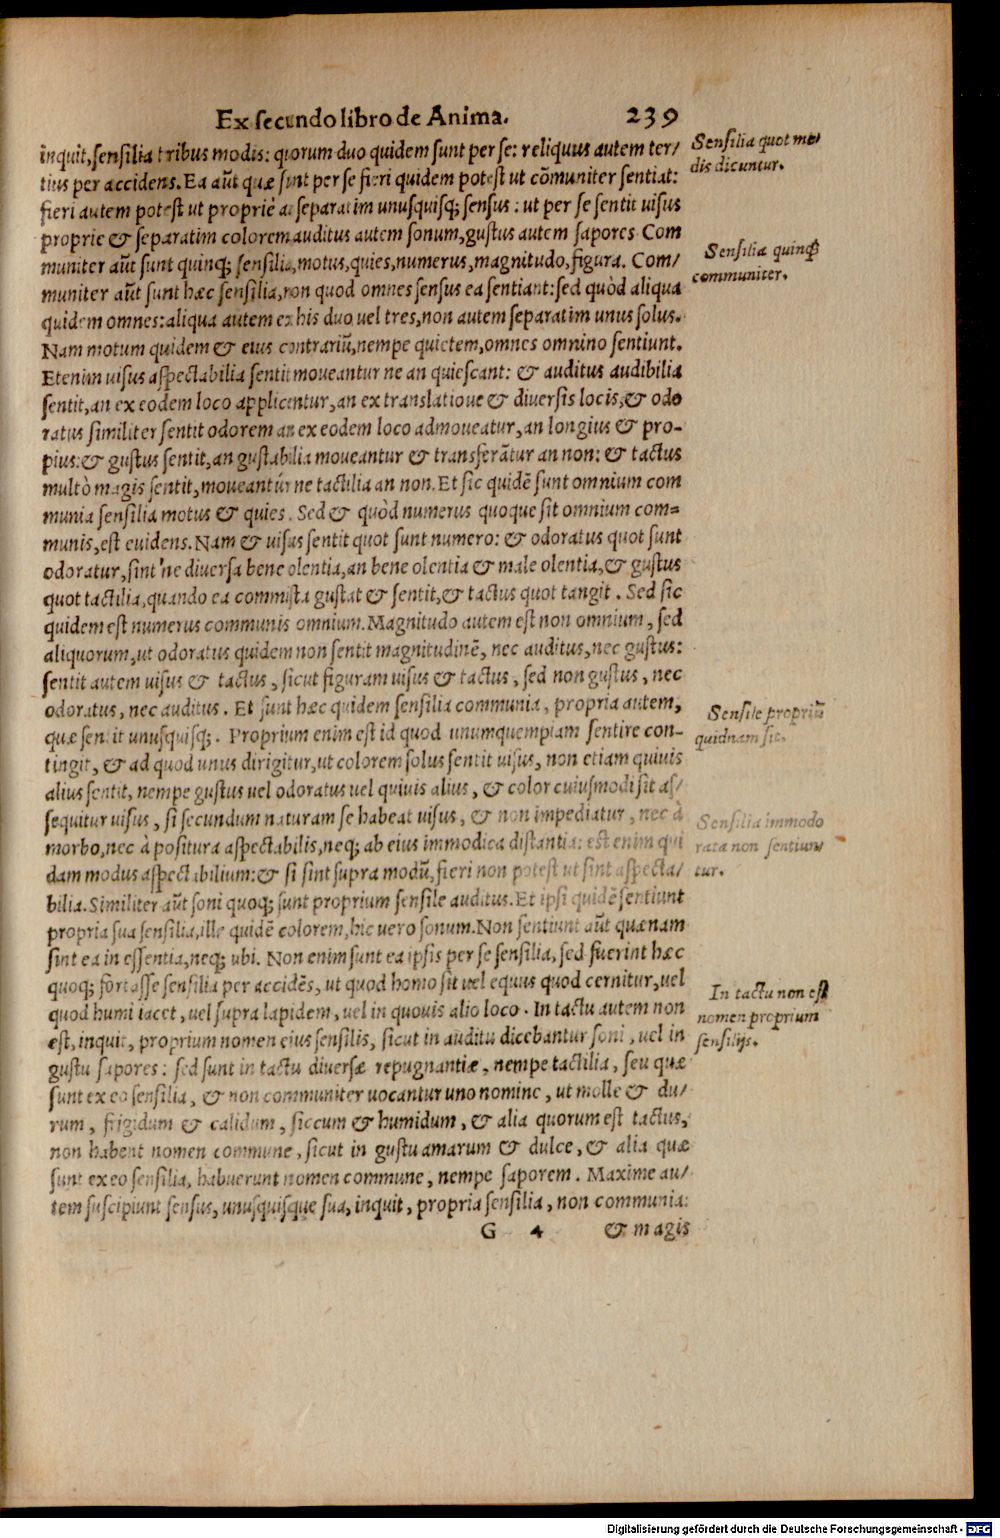 Ex secundo libro de Anima. 239
inquit, sensilia tribus modis: quorum duo quidem sunt per se: reliquus autem ter/
tius per accidens. Ea aũt quæ sint per se fieri quidem potest ut cõmuniter sentiat:
fieri autem potest ut propriè ac separatim unusquisq; sensus: ut per se sentit uisus
proprie & separatim colorem auditus autem sonum, gustus autem sapores Com
muniter aũt sunt quinq; sensilia, motus, quies, numerus, magnitudo, figura. Com/
muniter aũt sunt hæc sensilia, non quod omnes sensus ea sentiant: sed quòd aliqua
quidem omnes: aliqua autem ex his duo uel tres, non autem separatim unus solus.
Nam motum quidem & eius contrariũ, nempe quietem, omnes omnino sentiunt.
Etenim uisus aspectabilia sentit moueantur ne an quiescant: & auditus audibilia
sentit, an ex eodem loco applicentur, an ex translatione & diuersis locis, & odo
ratus similiter sentit odorem an ex eodem loco admoueatur, an longius & pro-
pius: & gustus sentit, an gustabilia moueantur & transferãtur an non: & tactus
multò magis sentit, moueantúr ne tactilia an non. Et sic quidẽ sunt omnium com
munia sensilia motus & quies. Sed & quòd numerus quoque sit omnium com=
munis, est euidens. Nam & uisus sentit quot sunt numero: & odoratus quot sunt
odoratur, sint ne diuersa bene olentia, an bene olentia & male olentia, & gustus
quot tactilia, quando ea commista gustat & sentit, & tactus quot tangit. Sed sic
quidem est numerus communis omnium. Magnitudo autem est non omnium, sed
aliquorum, ut odoratus quidem non sentit magnitudinẽ, nec auditus, nec gustus:
sentit autem uisus & tactus, sicut figuram uisus & tactus, sed non gustus, nec
odoratus, nec auditus. Et sunt hæc quidem sensilia communia, propria autem,
quæ sentit unusquisq;. Proprium enim est id quod unumquempiam sentire con-
tingit, & ad quod unus dirigitur, ut colorem solus sentit uisus, non etiam quiuis
alius sentit, nempe gustus uel odoratus uel quiuis alius, & color cuiusmodi sit as/
sequitur uisus, si secundum naturam se habeat uisus, & non impediatur, nec à
morbo, nec à positura aspectabilis, neq; ab eius immodica distantia: est enim qui
dam modus aspectabilium: & si sint supra modũ, fieri non potest ut sint aspecta/
bilia. Similiter aũt soni quoq; sunt proprium sensile auditus. Et ipsi quidẽ sentiunt
propria sua sensilia, ille quidẽ colorem, hic uero sonum. Non sentiunt aũt quænam
sint ea in essentia, neq; ubi. Non enim sunt ea ipsis per se sensilia, sed fuerint hæc
quoq; fortasse sensilia per accidẽs, ut quod homo sit uel equus quod cernitur, uel
quod humi iacet, uel supra lapidem, uel in quouis alio loco. In tactu autem non
est, inquit, proprium nomen eius sensilis, sicut in auditu dicebantur soni, uel in
gustu sapores: sed sunt in tactu diuersæ repugnantiæ, nempe tactilia, seu quæ
sunt ex eo sensilia, & non communiter uocantur uno nomine, ut molle & du/
rum, frigidum & calidum, siccum & humidum, & alia quorum est tactus,
non habent nomen commune, sicut in gustu amarum & dulce, & alia quæ
sunt ex eo sensilia, habuerunt nomen commune, nempe saporem. Maxime au/
tem suscipiunt sensus, unusquisque sua, inquit, propria sensilia, non communia:
G 4 & magis
Sensilia quot mo/
dis dicuntur.
Sensilia quinq;
communiter.
Sensile propriũ
quidnam sit.
Sensilia immodo
rata non sentiun/
tur.
In tactu non est
nomen proprium
sensilijs.
Digitalisierung gefördert durch die Deutsche Forschungsgemeinschaft - DFG